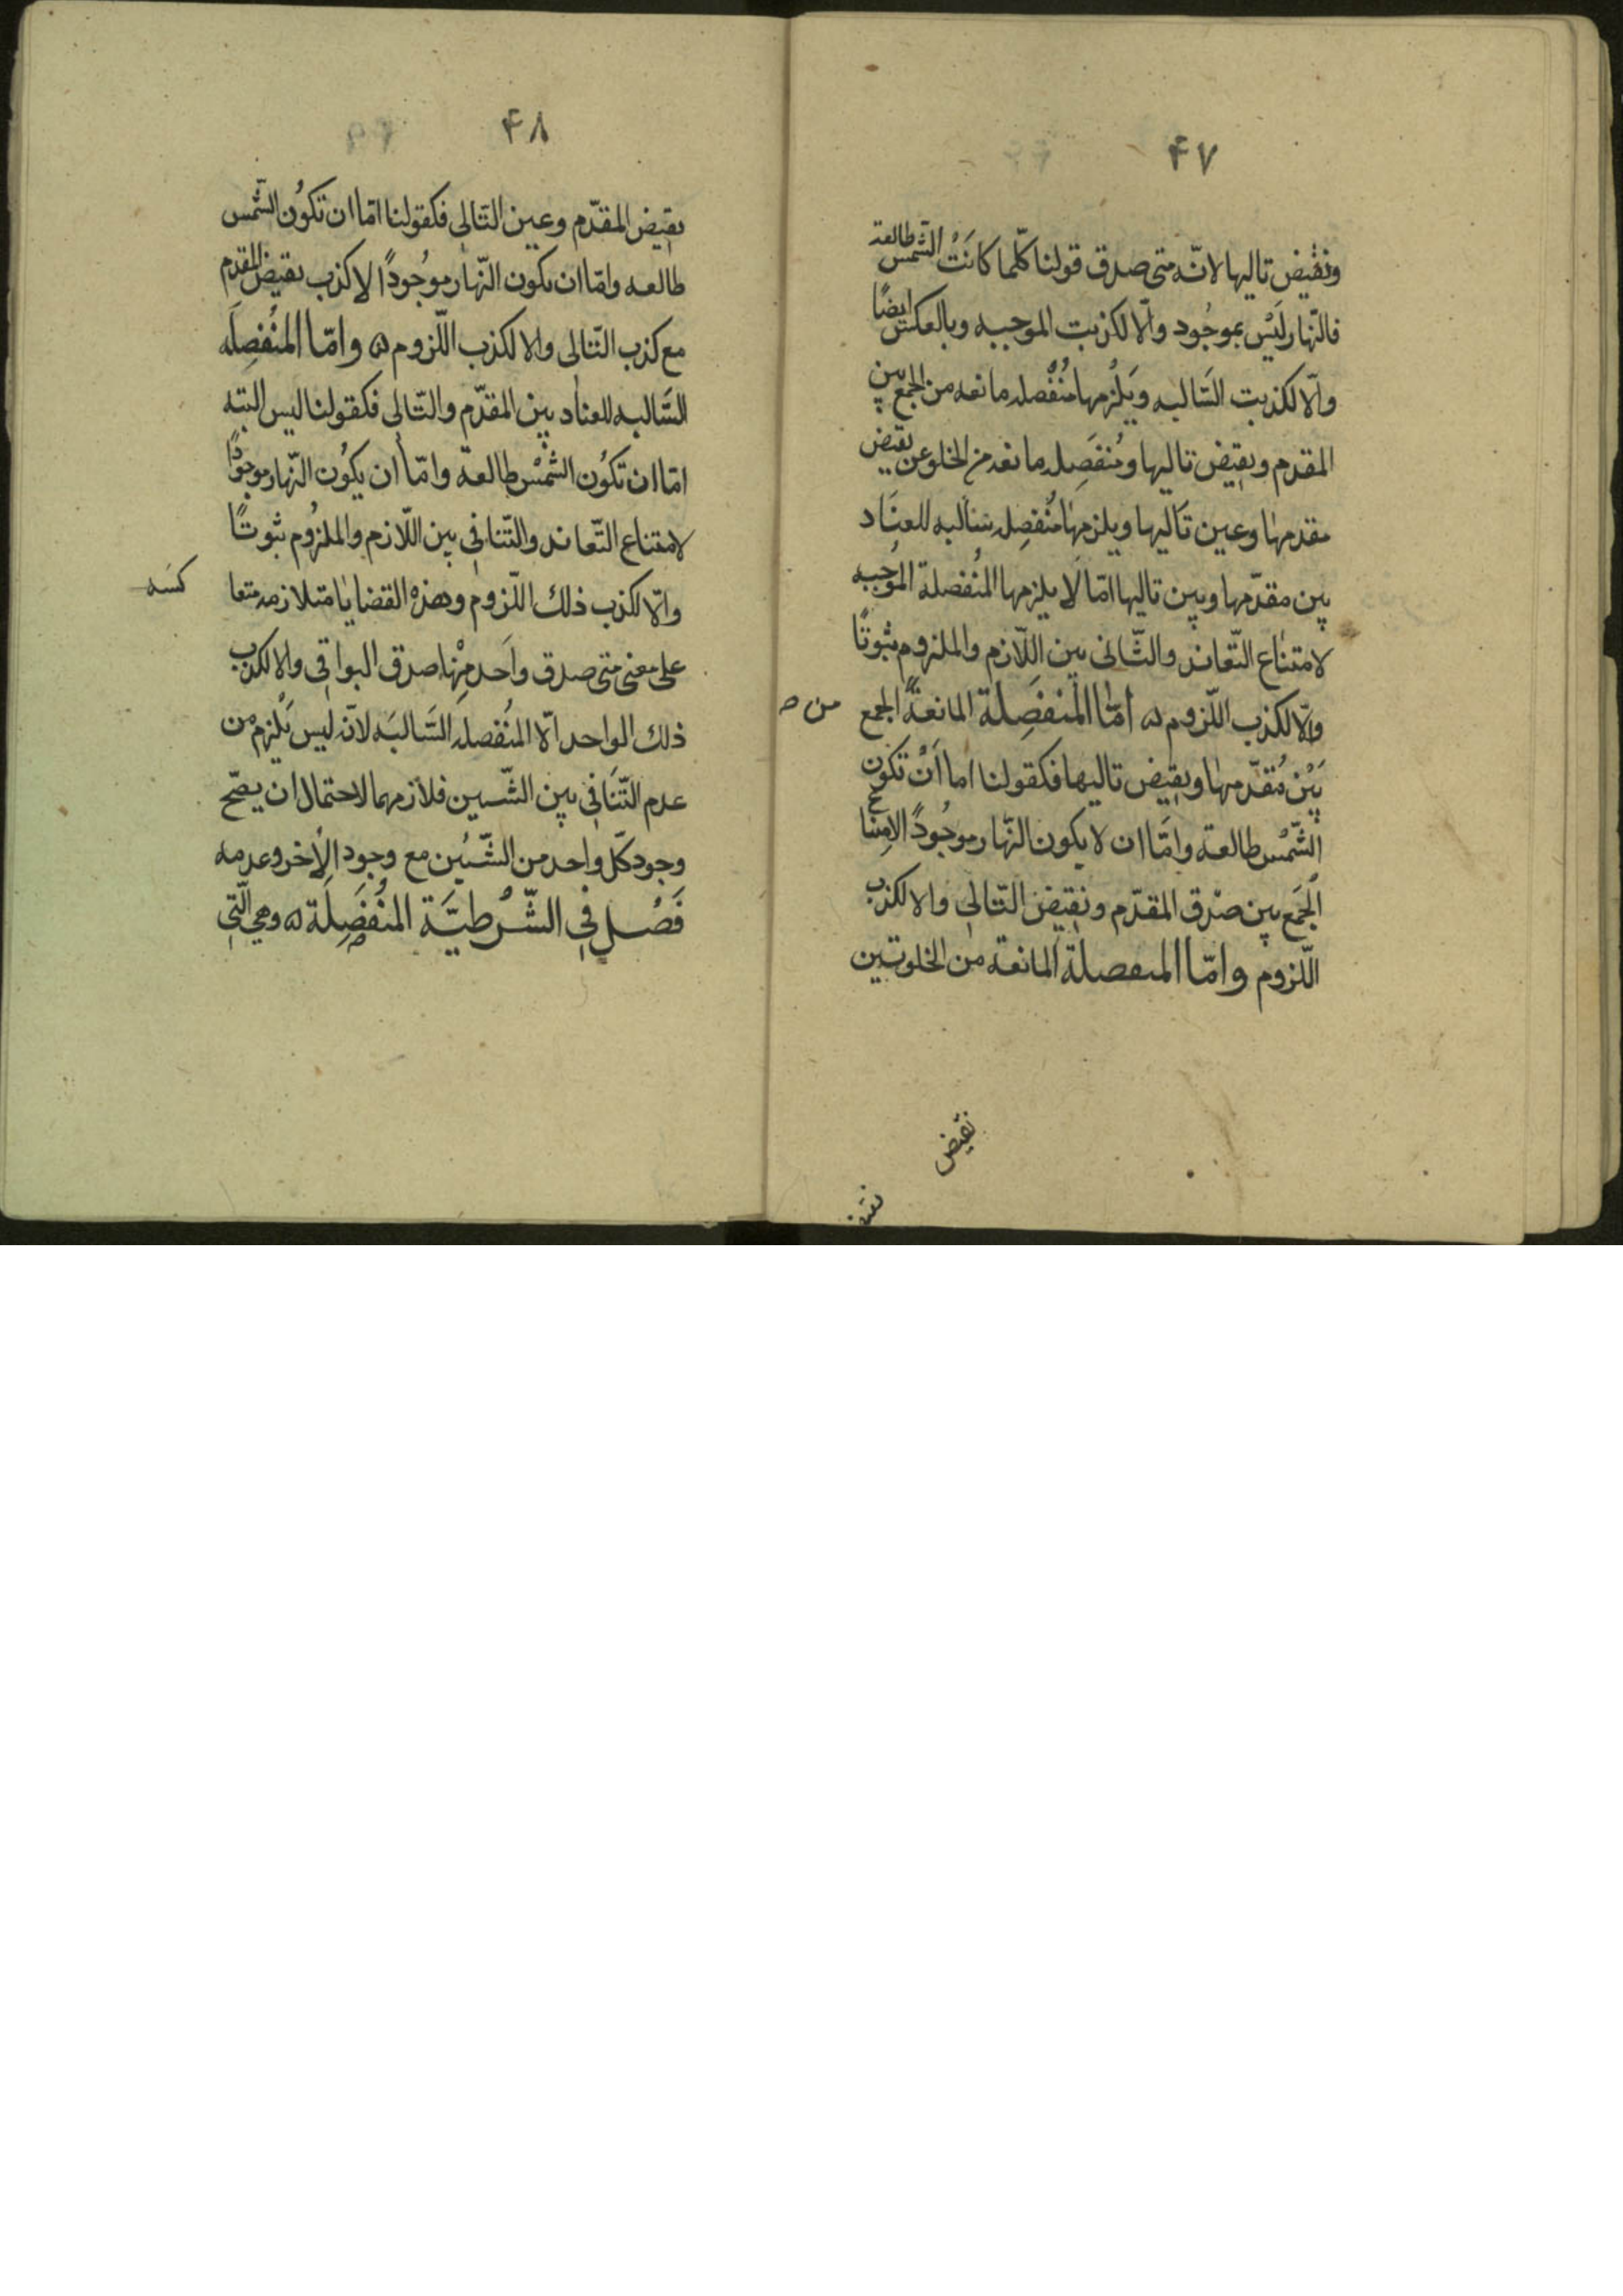 ۴۷
ونقيض تاليها لانّه متى صدق قولنا كلّما كانَتْ الشّمس طالعة
فالنّهار لَيْسَ بموجُود والّا لكذبت الموجبه وبالعكس ايضًا
والّا لكذبت السَّالبه ويَلْزمها مُنْفصله مانعه من الجمع بين
المقدم ونقيض تاليها ومُنفَصِله مانعه من الخلو عن نقيض
مقدمها وعين تاليها ويلزمها مُنفصِله سالبه للعنَاد
بين مقدّمها وبين تاليها امّا لَا يلزمها المُنفصلة المُوجبه
لامتناع التّعاند والثّانى بين اللّازم والملزوم ثبوتًا
والّا لكذب اللّزوم ۵ امّا المُنفَصِلة المانعة الجمع
من ص
بَيْن مُقدّمها ونقيض تاليها فكقولنا اما اَنْ تكون
الشّمْس طالعة وامَّا ان لا يكون النّهار موجُودً الامتناع
الجَمع بين صدق المقدّم ونقيض التّالى والا لكذب
اللّزوم وامّا المنفصلة المانعة من الخلو بين
نقيض
۴۸
نقيض المقدّم وعين التّالى فكقولنا امّا ان تكُون الشّمس
طالعه وامّا ان يكون النّهار موجُودً الا كذب نقيض المقدم
مع كذب التّالى والا لكذب اللّزوم ۵ وامّا المنُفصِلَه
السَّالبه للعناد بين المقدّم والتّالى فكقولنا ليس البته
امّا ان تكُون الشمْس طالعة وامّا أن يكُون النّهار موجودًا
لامتناع التّعاند والتّنافى بين اللّازم والملزُوم ثبوتًا
والّا لكذب ذلك اللّزوم وهذه القضايا متلازمه متعا
كسه
على معنى متى صدق واَحد مِنْها صدق البواقى والا لكذب
ذلك الواحد الّا المنُفصله السَّالبَه لانّه ليس يَلْزم من
عدم التّنَافى بين الشّيين فلازمهما لاحتمال ان يصّح
وجود كلّ واحد من الشّيئين مع وجود الأخر وعدمه
فَصْل فى الشّرْطيَّة المنُفَصِلَة ۵ وهى الّتى